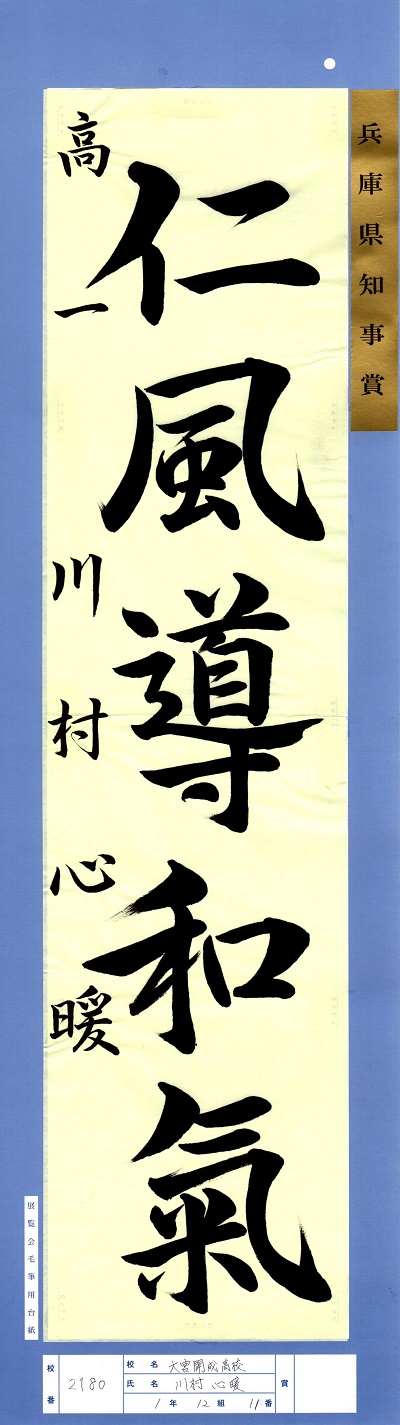 兵庫県知事賞
仁風導和氣
高一 川村心暖
展覧会毛筆用台紙
校番 2180
校名 大宮開成高校
氏名 川村 心暖
1年 12組 11番
賞